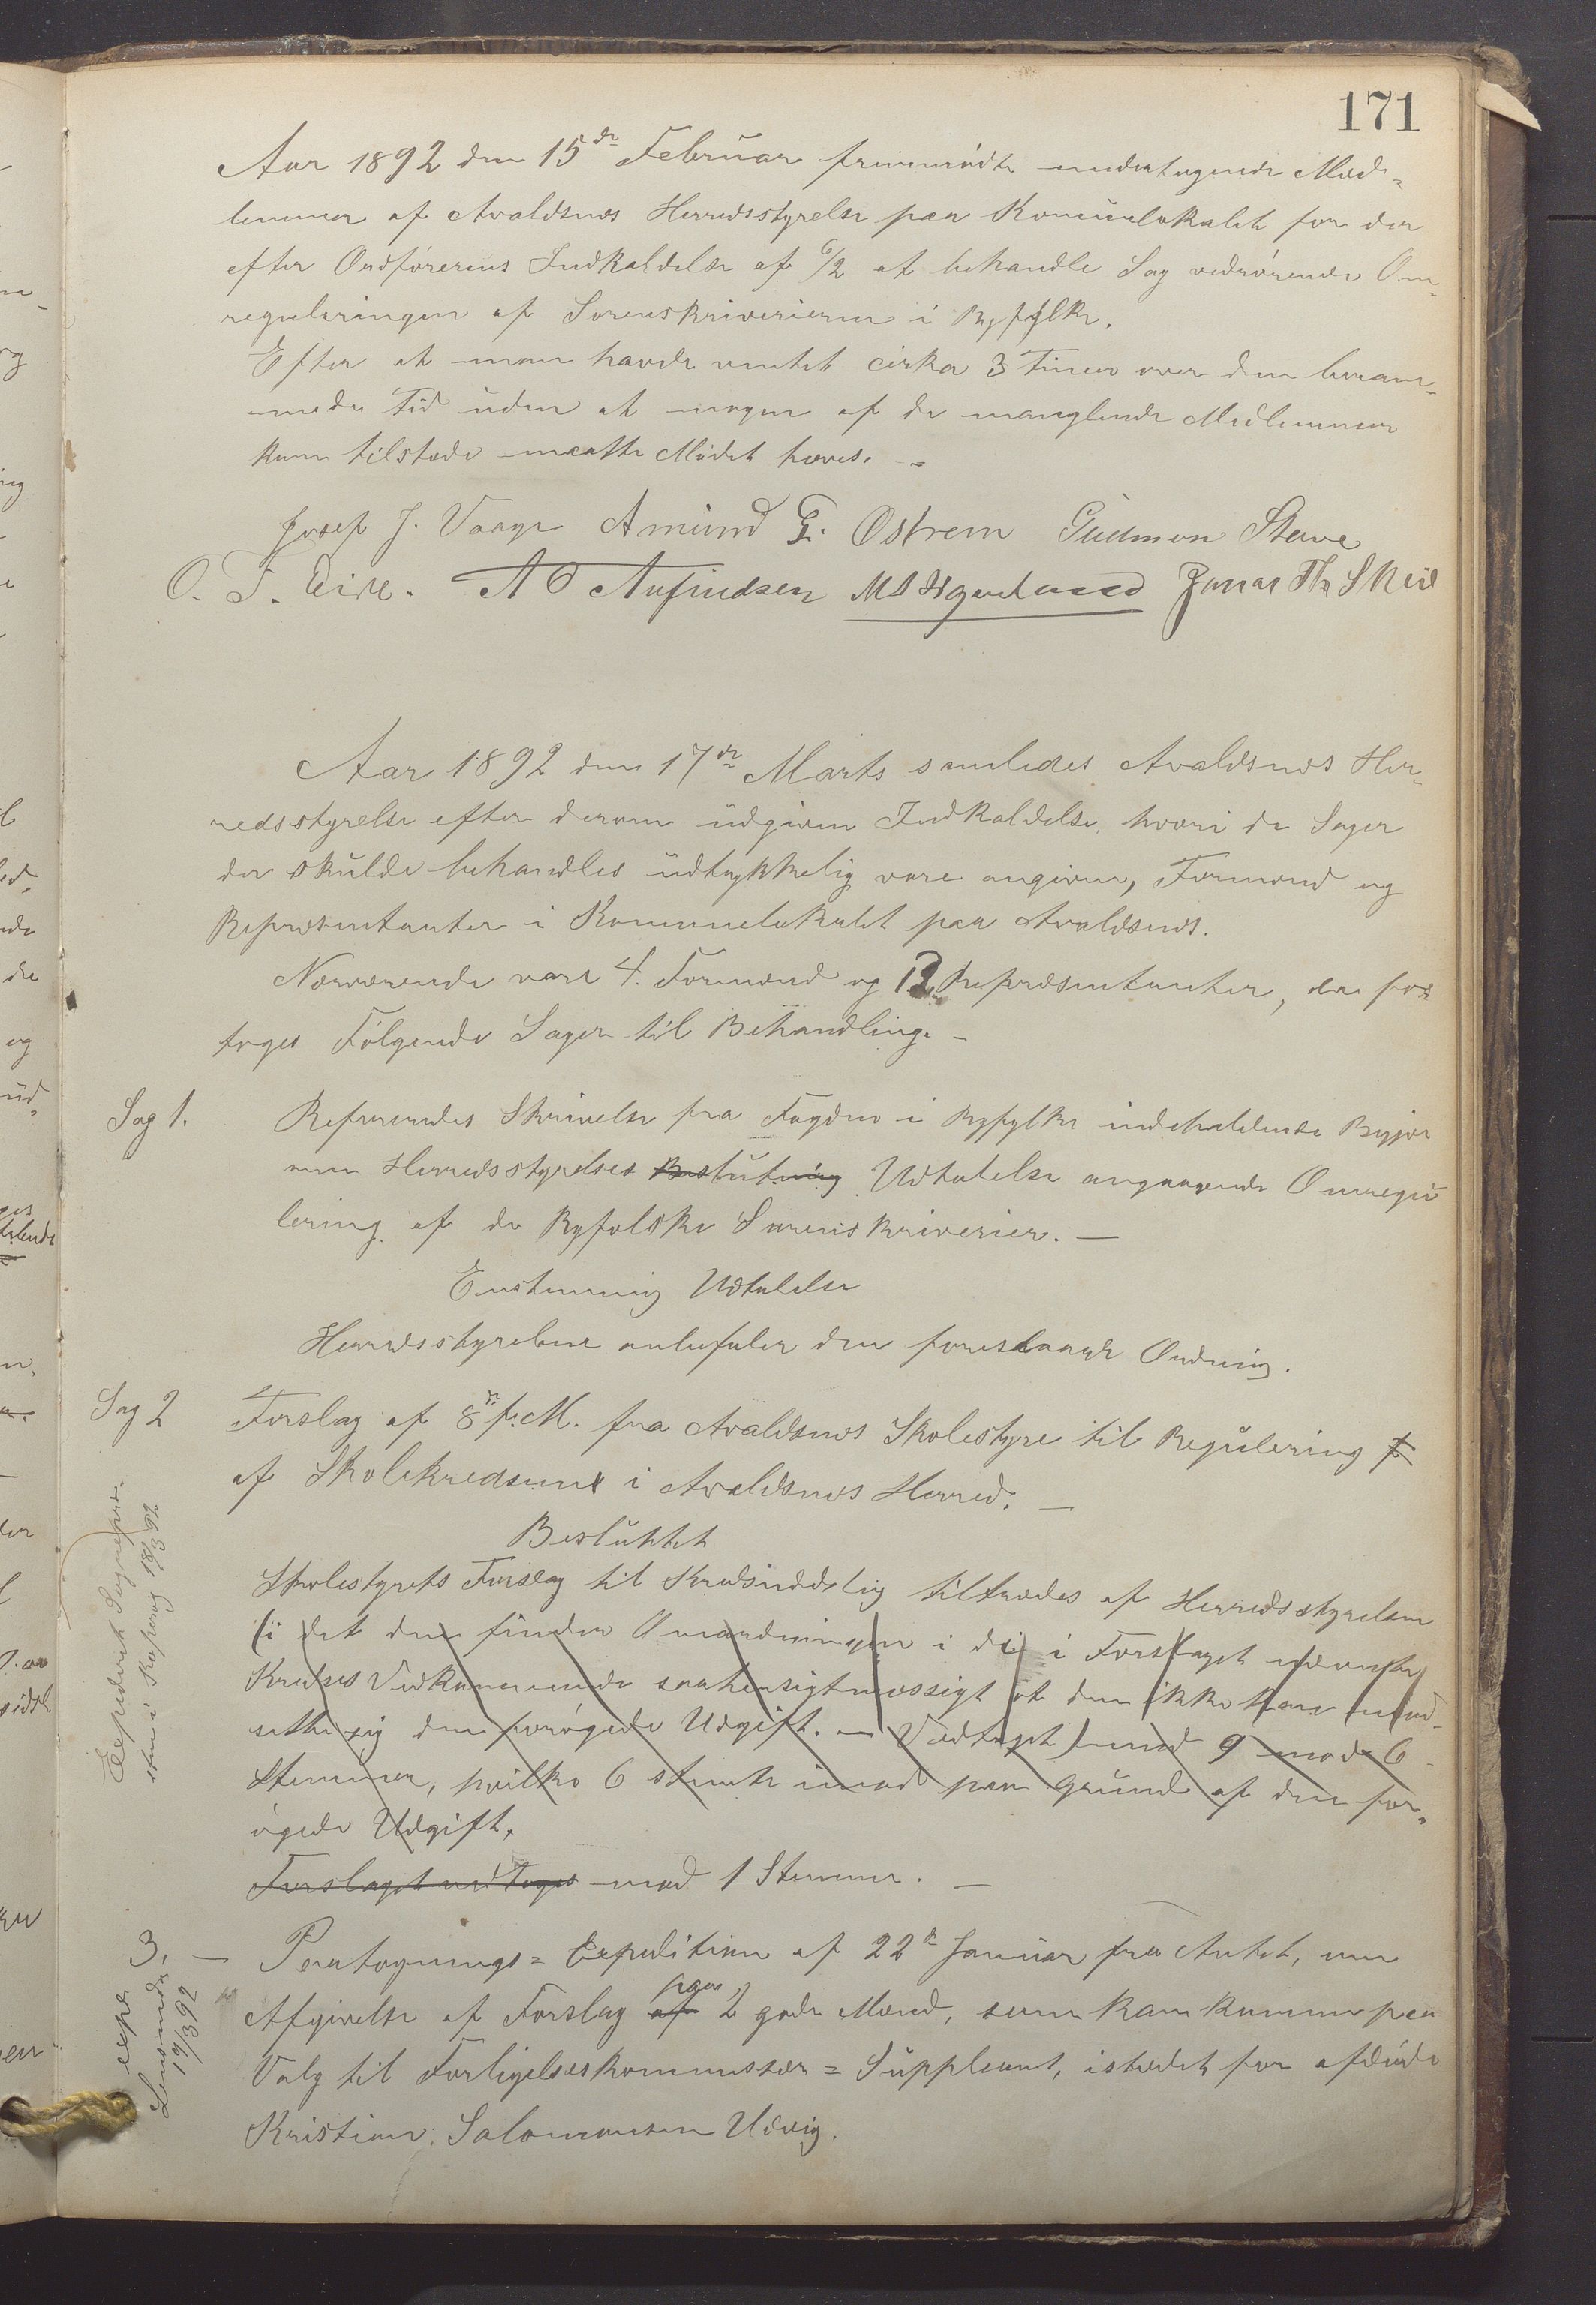 171
Aar 1892 den 15de Februar fremmødte undertegnede Med-
lemmer af Avaldsnes Herredsstyrelse paa Komunelokalet for der
efter Ordførerens Indkaldelse af 6/2 at behandle Sag vedrørende Om-
reguleringen af Sorenskriverierne i Ryfylke.
Efter at man havde ventet cirka 3 Timer over den beram-
mede Tid uden at nogen af de manglende Medlemmer
kom tilstede maatte Mødet hæves. -
Josef J. Vaage Amund G. Østrem Gudmon Stave
O. T. Eide. A O Anfindsen M S Hgvaland Jonas Th Skeie
Aar 1892 den 17de Marts samledes Avaldsnes Her-
redsstyrelse efter derom udgiven Indkaldelse, hvori de Sager
der skulde behandles udtrykkelig vare angivne, Formænd og
Repræsentanter i Kommunelokalet paa Avaldsnes.
Nærværende vare 4. Formænd og 12 Repræsentanter, der for
toges Følgende Sager til Behandling. -
Sag 1. Refereredes Skrivelse fra Fogden i Ryfylke indeholdende Begjær
om Herredsstyrelses Beslutning Udtalelse angaaende Omregu
lering af de Ryfylkske Sorenskriverier. -
Enstemmig Udtalelse
Herredsstyrelsen anbefaler den foreslaaede Ordning.
Sag 2 Forslag af 8de f. M. fra Avaldsnes Skolestyre til Regulering f
af Skolekredsene i Avaldsnes Herred. -
Besluttet
Skolestyrets Forslag til Kredsinddeling tiltrædes af Herredsstyrelsen
(i det den finder Omordningen i de i Forslaget nævnte
Kredses Vedkommende saa hensigtmæssigt at den ikke kan mod-
sette sig den forøgede Udgift. - Vedtaget) med 9 mod 6
Stemmer, hvilke 6 stemte imod paa Grund af den for-
øgede Udgift.
Forslaget vedtages mod 1 Stemme. -
Expederet Sognepræ
sten i Kopervig 18/3 92
3. - Paategnings-Expedition af 22de Januar fra Amtet, om
Afgivelse af Forslag af paa 2 gode Mænd, som kan komme paa
Valg til Forligelseskommissær-Suppleant, istedet for afdøde
Kristian Salomonsen Udvig.
expr
Lensmnd
19/3 92